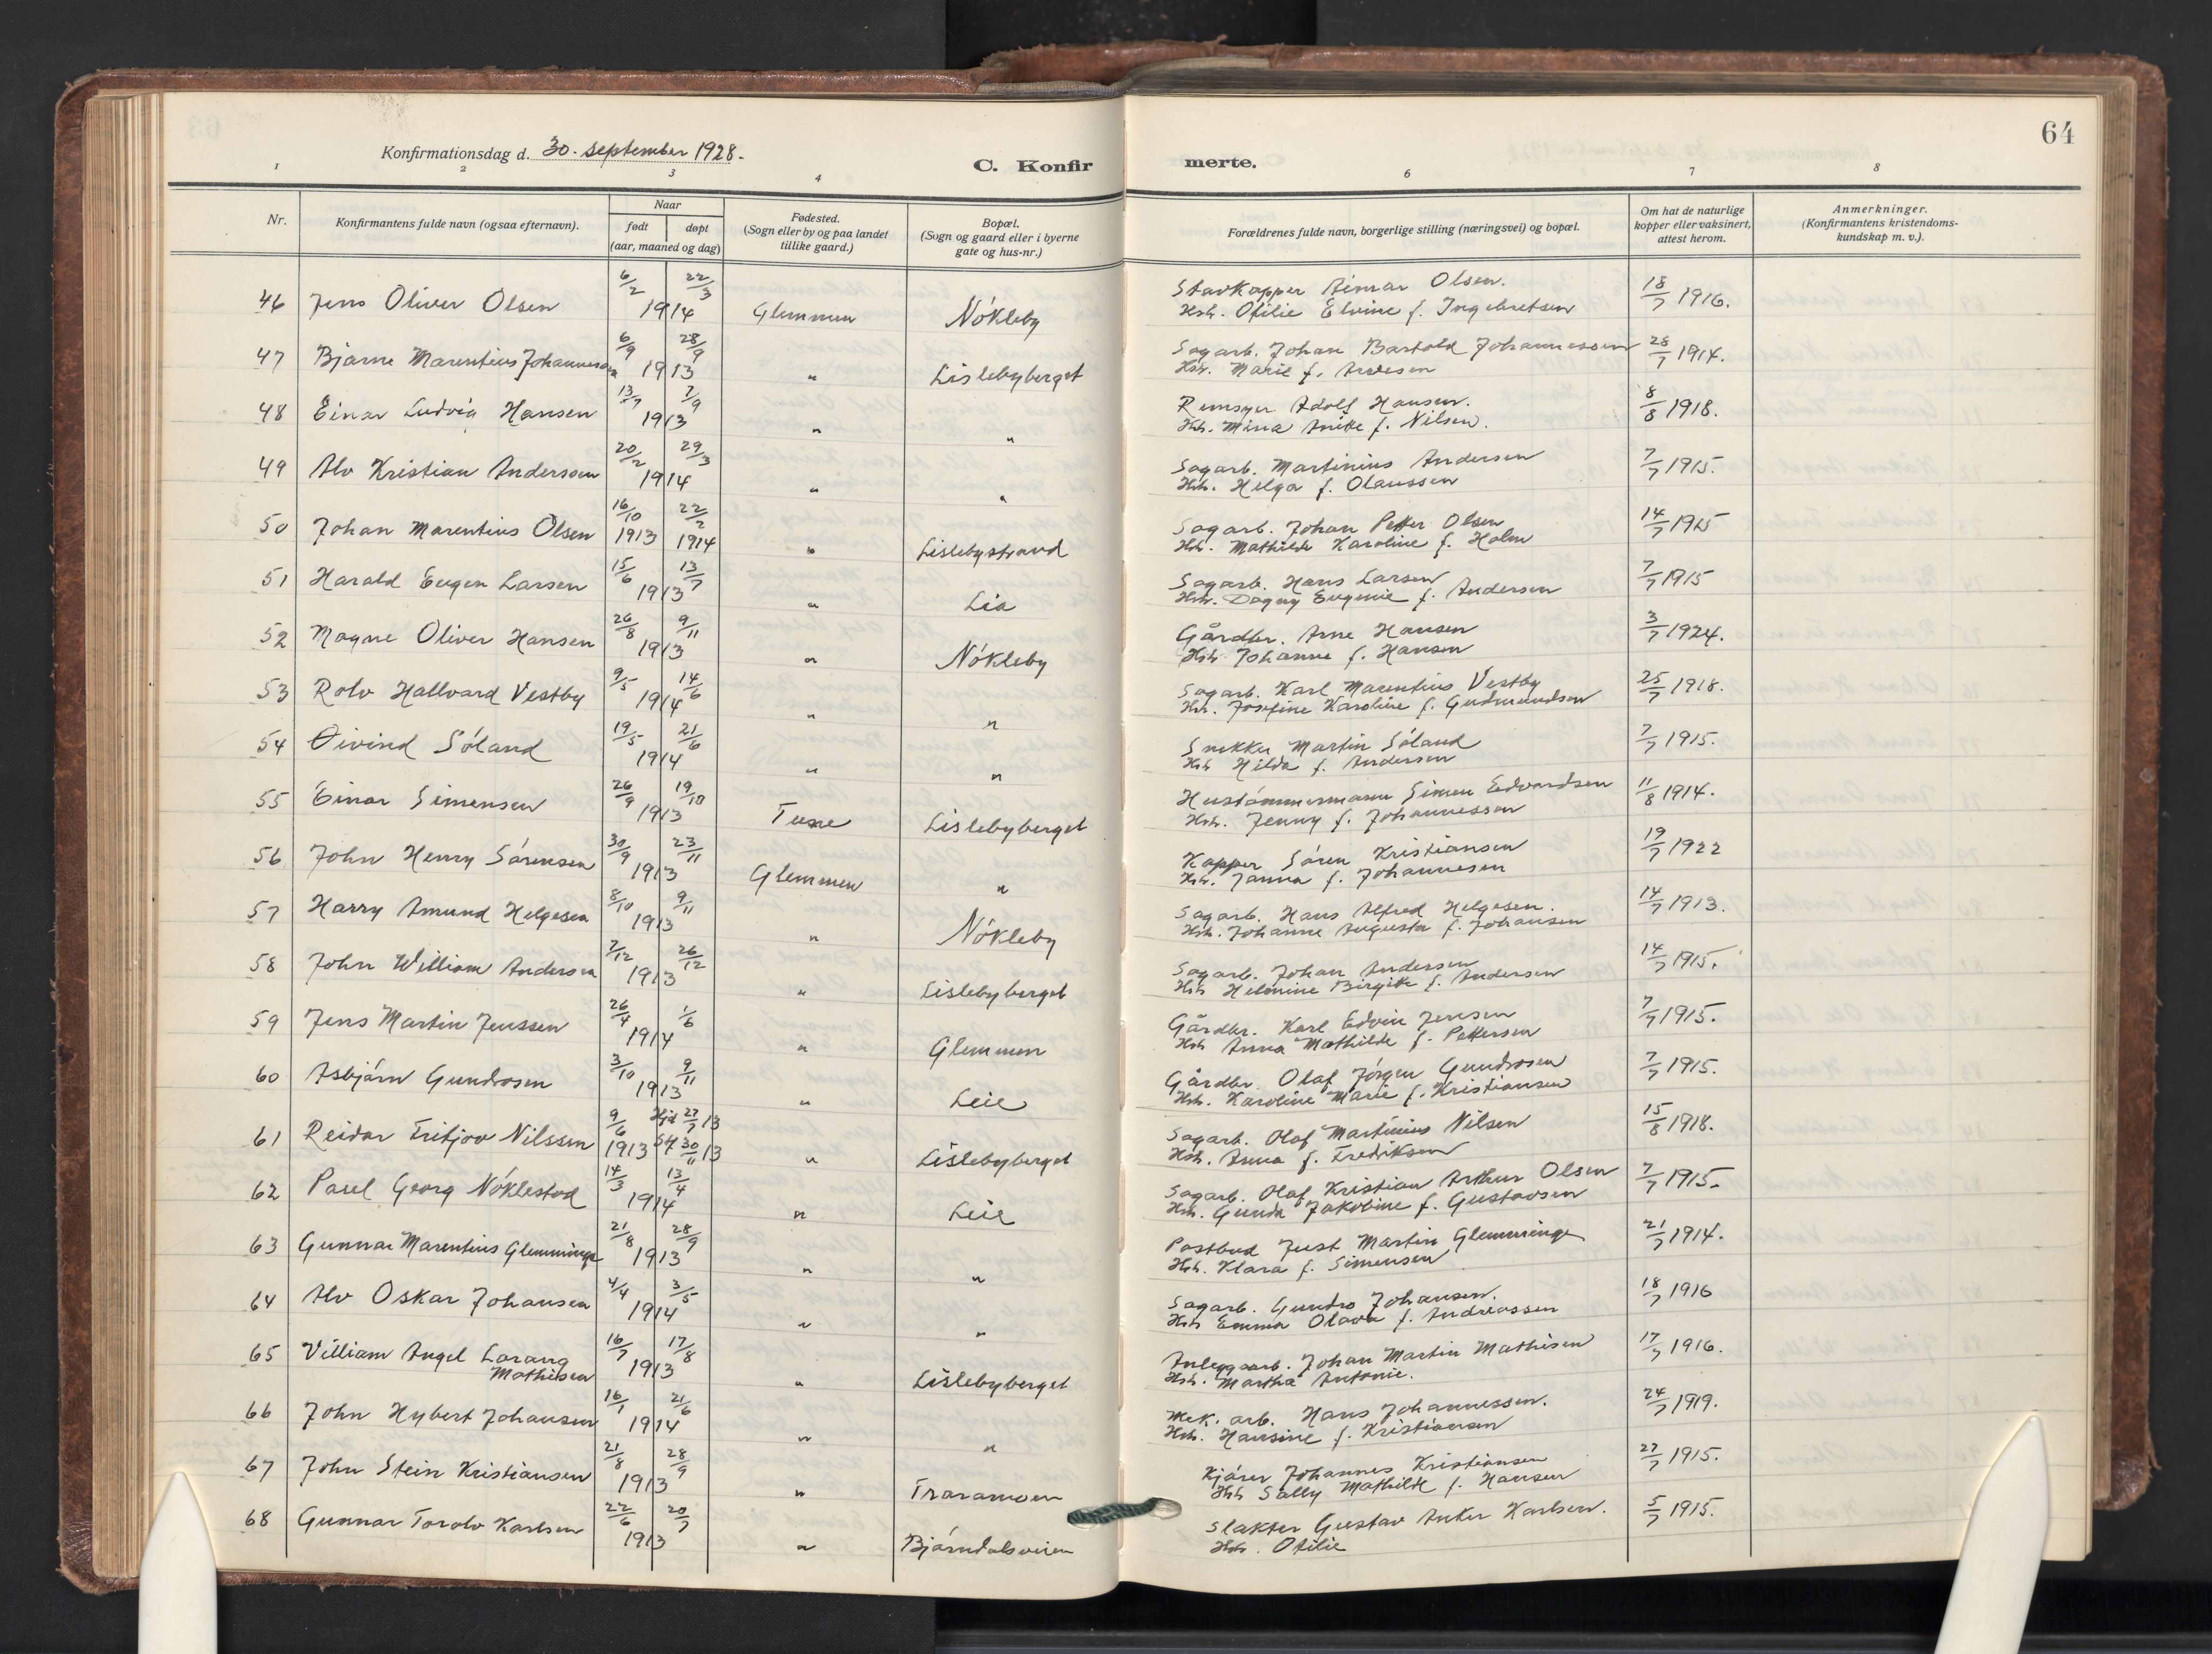 64
Konfirmationsdag d. 30. september 1928.
C. Konfir
merte.
1 2 3 4 6 7 8
Nr.
Konfirmantens fulde navn (ogsaa efternavn).
Naar
født døpt
(aar, maaned og dag)
Fødested.
(Sogn eller by og paa landet
tillike gaard.)
Bopæl.
(Sogn og gaard eller i byerne
gate og hus-nr.)
Forældrenes fulde navn, borgerlige stilling (næringsvei) og bopæl.
Om hat de naturlige
kopper eller vaksinert,
attest herom.
Anmerkninger.
(Konfirmantens kristendoms-
kundskap m. v.).
46 Jens Oliver Olsen 6/2 22/3 1914 Glemmen Nókleby Stavkapper Aimar Olsen. 18/7 1916.
Hst. Otilie Elvine f. Ingebretsen
47 Bjarne Marentius Johannessen 6/9 28/9 1913 " Lislebyberget Sagarb. Johan Bartold Johannessen 28/7 1914.
Hst. Marie f. Andresen
48 Einar Ludvig Hansen 13/7 7/9 1913 " " Adolf Hansen. 8/8 1918.
Hst. Mina Anitte f. Nilsen.
49 Alv Kristian Anderssen 20/2 29/3 1914 " " Sagarb. Martinius Andersen 7/7 1915.
Hst. Helga f. Olaussen
50 Johan Marentius Olsen 16/10 1913 22/2 1914 " Lislebystrand Sagarb. Johan Petter Olsen 14/7 1915
Hst. Mathilde Karoline f. Holm
51 Harald Eugen Larsen 15/6 13/7 1913 " Lia Sagarb. Hans Larsen 7/7 1915
Hst. Dagny Eugenie f. Andersen
52 Magne Oliver Hansen 26/8 9/11 1913 " Nókleby Gårdbr. Arne Hansen 3/7 1924.
Hst. Johanne f. Hansen
53 Rolv Hallvard Vestby 9/5 14/6 1914 " " Sagarb. Karl Marentius Vestby 25/7 1918.
Hst. Josefine Karoline f. Gudmundsen
54 Øivind Sóland 19/5 21/6 1914 " " Snekker Martin Sóland 7/7 1915.
Hst Hilda f. Andersen
55 Einar Simensen 26/9 19/10 1913 Tune Lislebyberget Hustómmermann Simen Edvardsen 11/8 1914.
Hst. Jenny f. Johannessen
56 John Henry Sórensen 30/9 23/11 1913 Glemmen " Kapper Sóren Kristiansen 19/7 1922
Hst. Janna f. Johannesen
57 Harry Amund Helgesen 8/10 9/11 1913 " Nókleby Sagarb. Hans Alfred Helgesen. 14/7 1913.
Hst. Johanne Augusta f. Johansen
58 John William Andersen 7/12 26/12 1913 " Lislebyberget Sagarb. Johan Andersen 14/7 1915.
Hst Helmine Birgitte f. Andersen
59 Jens Martin Jenssen 26/4 1/6 1914 " Glemmen Gårdbr. Karl Edvin Jensen 7/7 1915.
Hst Anna Mathilde f. Pettersen
60 Asbjórn Gundrosen 3/10 9/11 1913 " Leie Gårdbr. Olaf Jórgen Gundrosen 7/7 1915.
Hst. Karoline Marie f. Kristiansen
61 Reidar Fritjov Nilssen 9/6 1913 Hjd 27/7 13 St 30/11 13 " Lislebyberget Sagarb. Olaf Martinius Nilsen 15/8 1918.
Hst. Anna f. Fredriksen
62 Paul Georg Nóklestad 14/3 13/4 1914 " Leie Sagarb. Olaf Kristian Arthur Olsen 7/7 1915.
Hst. Gunda Jakobine f. Gustavsen
63 Gunnar Marentius Glemminge 21/8 28/9 1913 " " Postbud Just Martin Glemminge 21/7 1914.
Hst. Klara f. Simensen
64 Alv Oskar Johansen 4/4 3/5 1914 " " Sagarb. Gundro Johansen. 18/7 1916
Hst Emma Olava f. Andreassen
65 Villiam Angel Larang 16/7 17/8 1913 " Lislebyberget Anleggsarb. Johan Martin Mathisen 17/7 1916.
Mathisen Hst. Martha Antonie.
66 John Hybert Johansen 16/1 21/6 1914 " " Mek. arb. Hans Johannessen. 24/7 1919.
Hst. Hansine f. Kristiansen
67 John Stein Kristiansen 21/8 28/9 1913 " Traramoen Kjórer Johannes Kristiansen 27/7 1915.
Hst Sally Mathilde f. Hansen
68 Gunnar Torolv Karlsen 22/6 20/7 1913 " Bjórndalsveien Slakter Gustav Anker Karlsen. 5/7 1915.
Hst. Otilie